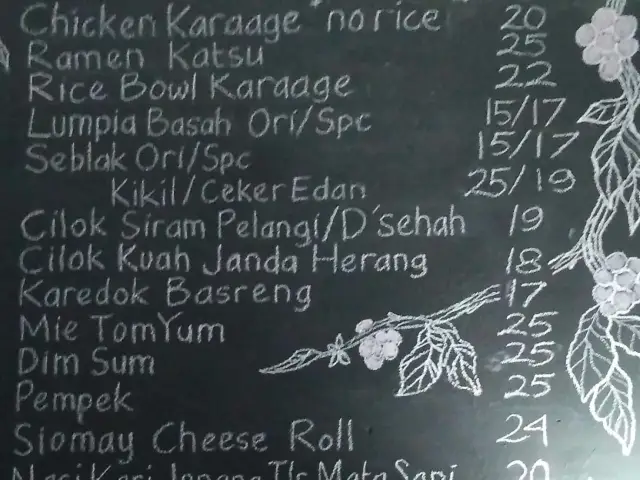 Chicken Karaage "no rice 20
Ramen Katsu 25
Rice Bowl Karaage 22
Lumpia Basah Ori/Spc 15/17
Seblak Ori/Spc 15/17
Kikil/Ceker Edan 25/19
Cilok Siram Pelangi/D'sehah 19
Cilok Kuah Janda Herang 18
Karedok Basreng 17
Mie Tom Yum 25
Dim Sum 25
Pempek 25
Siomay Cheese Roll 24
Nasi Kari Jepang Tlr Mata Sapi 20